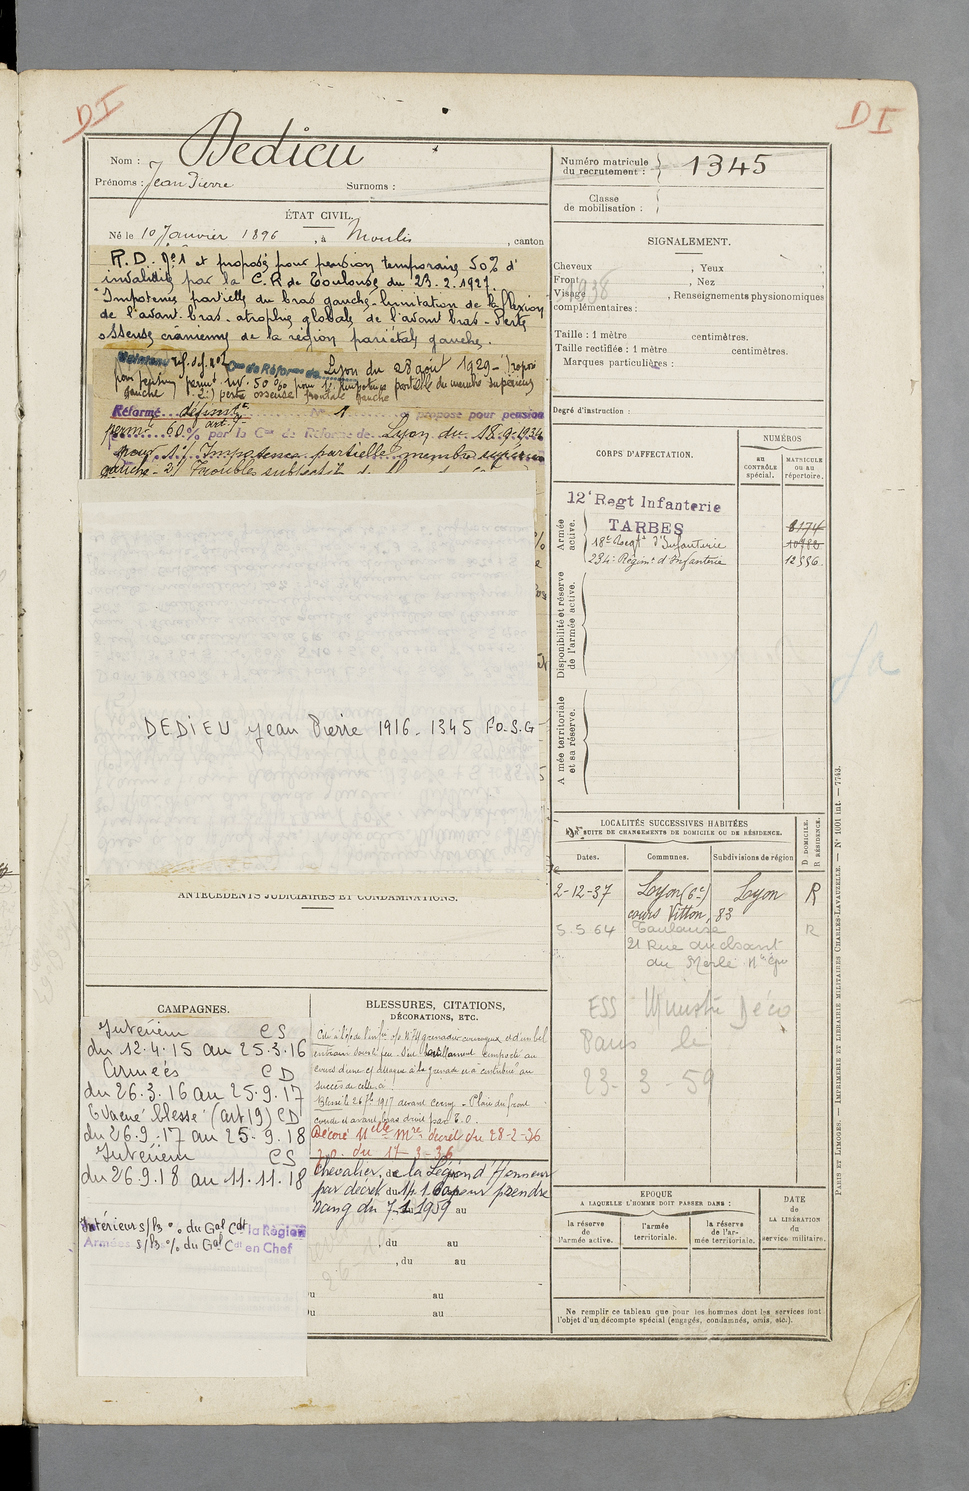 DI
DI
Nom : Dedieu
Prénoms : Jean Pierre
Surnoms :
ÉTAT CIVIL.
Né le 10 Janvier 1896, à Moulis, canton
R.D. n°1 et proposé pour pension temporaire 50% d'
invalidité par la C.R de Toulouse du 23.2.1927.
"Impotence partielle du bras gauche - limitation de la flexion
de l'avant-bras - atrophie globale de l'avant bras - Perte
osseuse crânienne de la région pariétale gauche.
Maintenu réf. déf. n°2 Con de Réforme de Lyon du 28 août 1929 - Proposé
pour pension permte inv. 50% pour 1°) impotence partielle du membre supérieur
gauche 2°) perte osseuse frontale gauche
Réformé définitt N° 1 a proposé pour pension
permte 60% art. 7 par la Con de Réforme de Lyon du 18.9.1934
pour 1°/ Impotence partielle membre supérieur
gauche - 2°/ Troubles subjectifs
DEDIEU Jean Pierre 1916 - 1345 F.O.S.G
ANTÉCÉDENTS JUDICIAIRES ET CONDAMNATIONS.
CAMPAGNES.
Intérieur CS
du 12.4.15 au 25.3.16
Armées CD
du 26.3.16 au 25.9.17
Evacué blessé (art 19) CD
du 26.9.17 au 25.9.18
Intérieur CS
du 26.9.18 au 11.11.18
Intérieur s/b % du Gal Cdt la Région
Armées s/b % du Gal Cdt en Chef
BLESSURES, CITATIONS,
DÉCORATIONS, ETC.
Cité à l'ordre grenadier courageux et d'un bel
entrain sous le feu. S'est brillamment comporté au
cours d'une attaque à la grenade et a contribué au
succès de celle-ci
Blessé le 26 7bre 1917 devant Cerny - Plaie du front
coude et avant bras droit par E.O.
Décoré Mlle Mre décret du 28-2-36
J.O. du 17-3-36
Chevalier de la Légion d'Honneur
par décret du pour prendre
rang du 7.1.1959 au
, du au
, du au
du au
du au
Numéro matricule
du recrutement : 1345
Classe
de mobilisation :
SIGNALEMENT.
Cheveux , Yeux ,
Front , Nez ,
Visage , Renseignements physionomiques
complémentaires :
1938
Taille : 1 mètre centimètres.
Taille rectifiée : 1 mètre centimètres.
Marques particulières :
Degré d'instruction :
CORPS D'AFFECTATION.
NUMÉROS
au CONTRÔLE spécial.
MATRICULE ou au répertoire.
Armée active.
12e Regt Infanterie
TARBES 8174
18e Regt d'Infanterie 10982
234e Régimt d'Infanterie 12556
Disponibilité et réserve de l'armée active.
A mée territoriale et sa réserve.
LOCALITÉS SUCCESSIVES HABITÉES
PAR SUITE DE CHANGEMENTS DE DOMICILE OU DE RÉSIDENCE.
D DOMICILE. R RÉSIDENCE.
Dates. Communes. Subdivisions de région
2-12-37 Lyon (6e) Lyon R
cours Vitton, 83
5.5.64 Toulouse R
21 Rue du chant
du Merle
ESS Ministre Déco
Paris le
23-3-59
EPOQUE
A LAQUELLE L'HOMME DOIT PASSER DANS :
la réserve de l'armée active.
l'armée territoriale.
la réserve de l'armée territoriale.
DATE
de
LA LIBÉRATION
du
service militaire.
Ne remplir ce tableau que pour les hommes dont les services font
l'objet d'un décompte spécial (engagés, condamnés, omis, etc.).
PARIS ET LIMOGES. — IMPRIMERIE ET LIBRAIRIE MILITAIRES CHARLES-LAVAUZELLE. — N° 1001 int. — 7743.